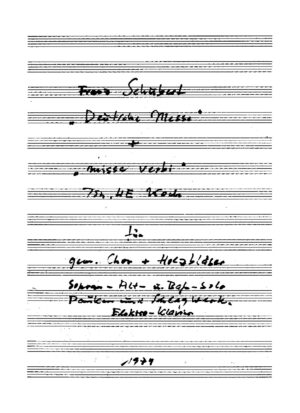 Franz Schubert
"Deutsche Messe"
+
"missa verbi"
Joh. HE Koch
für
gem. Chor + Holzbläser
Sopran - Alt- u. Baß-Solo
Pauken und Schlagwerk.
Elektro-Klavier
1974